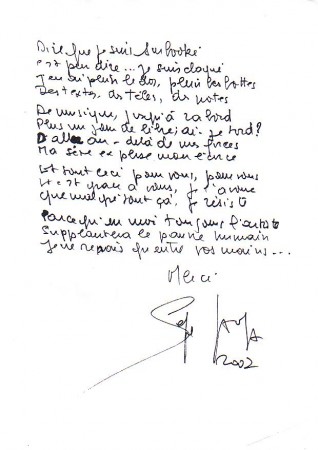 Dire que je suis surbooké
est peu dire... je suis claqué
J'en ai plein le dos, plein les bottes
Des textes, des télés, des notes
De musique, jusqu'à ras bord
Plus un jour de libre, ai-je tord?
D'aller au-delà de mes forces
Ma sève expulse mon écorce
Et tout ceci pour vous, pour vous
Et c'est grâce à vous, je l'avoue
Que malgré tout ça, je résiste
Parce qu'en moi toujours l'artiste
Supplantera le pauvre humain
Je ne repais qu'entre vos mains...
Merci
2002